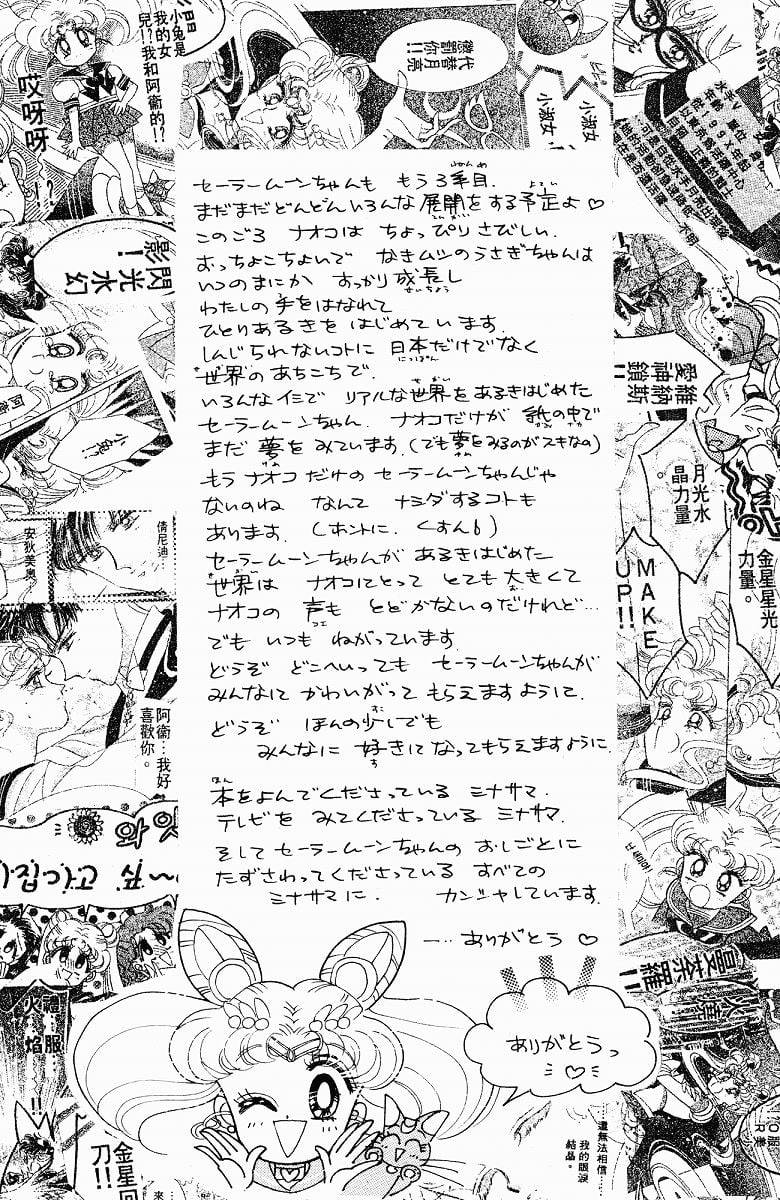 小兔是
我的女
兒!?我和
阿衛的!?
哎呀呀
!?
代替月亮
懲罰你!!
小淑女
小淑女
影!
閃光水幻
小兔!?
セーラームーンちゃんも もう3年目.
まだまだどんどんいろんな展開をする予定よ♡
このごろ ナオコは ちょっぴりさびしい.
おっちょこちょいで なきムシのうさぎちゃんは
いつのまにか すっかり成長し
わたしの手をはなれて
ひとりあるきを はじめています.
しんじられないコトに 日本だけでなく
世界のあちこちで.
いろんなイミで リアルな世界をあるきはじめた
セーラームーンちゃん. ナオコだけが 紙の中で
まだ夢をみています.(でも夢をみるのがスキなの)
もうナオコだけの セーラームーンちゃんじゃ
ないのね なんて ナミダするコトも
あります.(ホントに.くすん6)
セーラームーンちゃんが あるきはじめた
世界は ナオコにとって とても大きくて
ナオコの 声も とどかないのだけれど…
でも いつも ねがっています
どうぞ どこへいっても セーラームーンちゃんが
みんなに かわいがって もらえますように.
どうぞ ほんの少しでも
みんなに 好きになってもらえますように.
本をよんでくださっている ミナサマ.
テレビを みてくださっている ミナサマ.
そして セーラームーンちゃんの おしごとに
たずさわってくださっている すべての
ミナサマに. カンシャしています.
……ありがとう♡
ありがとうっ
♡
愛維納
神斯
鎖!!
月光水
晶力量。
金星星光
力量。
MAKE
UP!!
倩尼迪
安狄美奧
阿衛…我好
喜歡你。
曼陀羅!!
火焰
禮服
!!
金星回
刀!!
還無法相信…
我的眼淚
結晶。